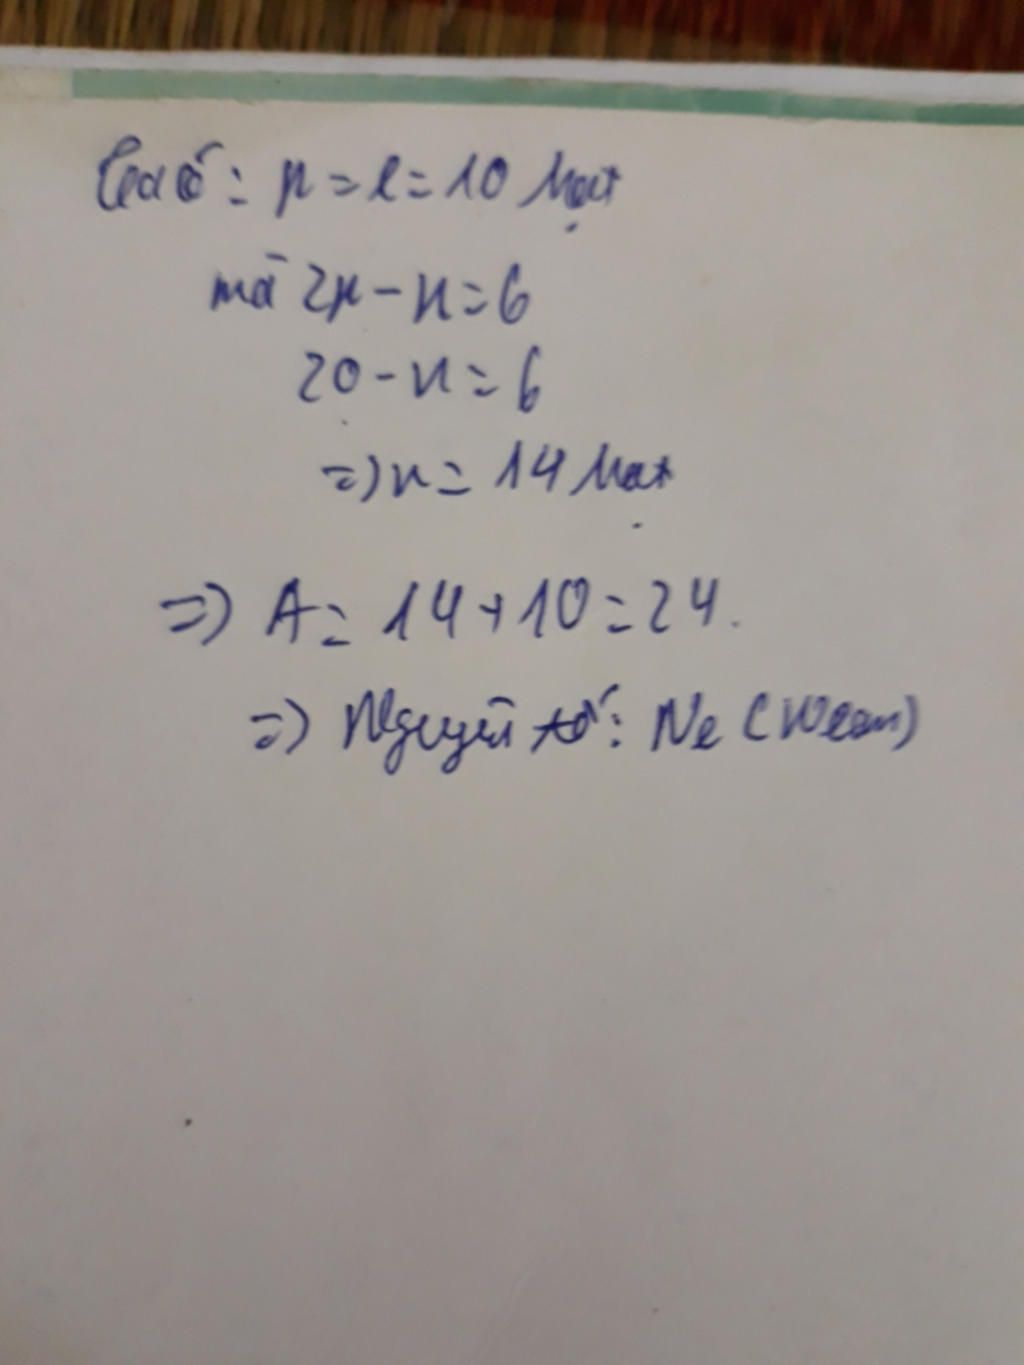 Ta có: p = e = 10 hạt
mà 2p - n = 6
20 - n = 6
=> n = 14 hạt
=> A = 14 + 10 = 24.
=> Nguyên tố: Ne (Neon)